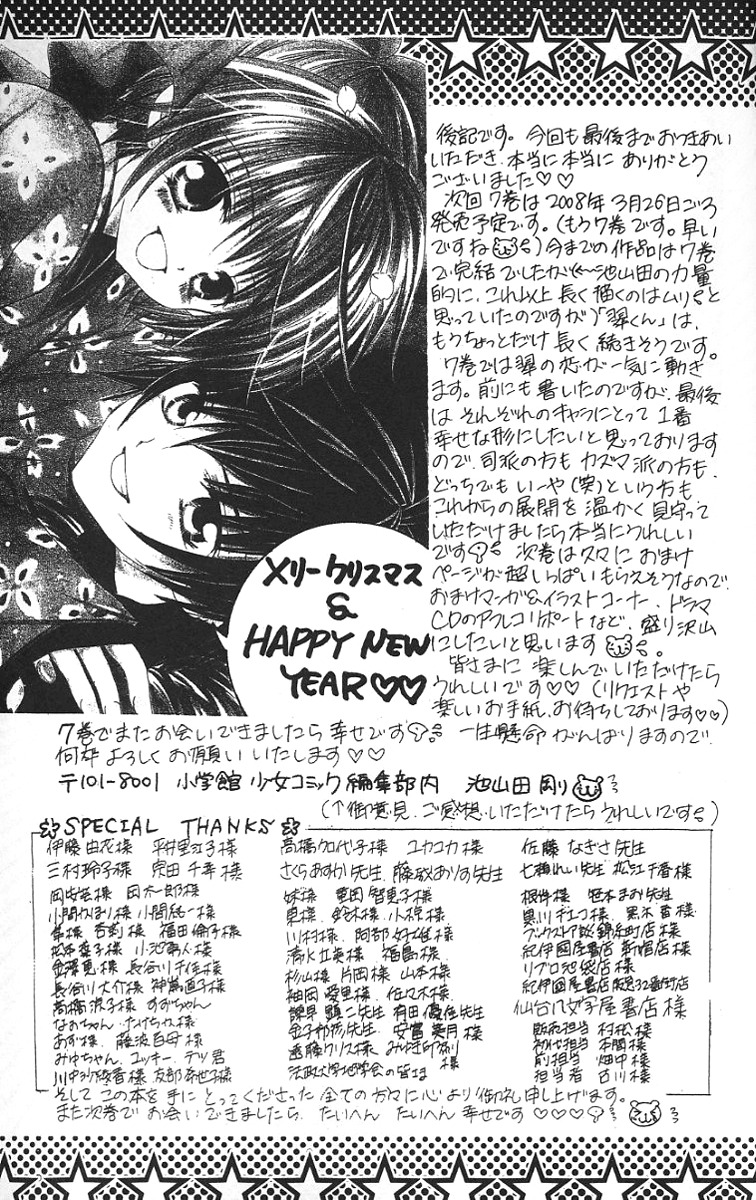 後記です。今回も最後までおつきあい
いただき、本当に本当に ありがとう
ございました♡♡
次回7巻は2008年3月26日ごろ
発売予定です。(もう7巻です。早い
ですね)今までの作品は7巻
で完結でしたが(←池山田の力量
的に、これ以上長く描くのはムリと
思っていたのですが)「翠くん」は、
もうちょっとだけ長く続きそうです。
7巻では翠の恋が一気に動き
ます。前にも書いたのですが、最後
は それぞれのキャラにとって1番
幸せな形にしたいと思っております
ので、司派の方も カズマ派の方も、
どっちでもいーや(笑)という方も
これからの展開を温かく見守って
いただけましたら本当にうれしい
です 次巻は久々におまけ
ページが超いっぱいもらえそうなので、
おまけマンガ&イラストコーナー、ドラマ
CDのアフレコリポートなど、盛り沢山
にしたいと思います。
皆さまに楽しんでいただけたら
うれしいです♡♡(リクエストや
楽しいお手紙、お待ちしております♡♡)
メリークリスマス
&
HAPPY NEW
YEAR♡♡
7巻でまたお会いできましたら幸せです 一生懸命がんばりますので、
何卒よろしくお願いいたします♡♡
〒101-8001 小学館 少女コミック編集部内 池山田剛
(↑御意見、ご感想いただけたらうれしいです)
SPECIAL THANKS
伊藤由花様 平村里江子様 高橋加代子様 ユカコカ様 佐藤なぎさ先生
三村玲子様 さくらあすか先生、藤咲ありす先生 七瀬れい先生 松江千香様
妹様 重田智恵子様 根件様 笹本まお先生
東様、鈴木様、小椋様 黒川チエコ様、黒木苗様
福田倫子様 川村様、阿部好雄様 ブックストア談錦糸町店様
清水立美様 福島様、 紀伊國屋書店 新宿店様
金澤晃様 長谷川千佳様 杉山様 片岡様 山本様 リブロ池袋店様
長谷川大介様 神薗直子様 袖岡愛里様、佐々木様 紀伊國屋書店
高橋涼子様 すずちゃん 諫早顕二先生 有田優佳先生 仙台八文字屋書店様
なおちゃん、たけちゃん様 安富美月様 販売担当 村松様
あすか様、藤波百母様 遠藤クリス様 みゆき印刷様 初代担当 本間様
みゆちゃん、ユッキー、テツ君 前担当 畑中様
友部奈也子様 法政大学地学会の皆さま 担当者 古川様
そしてこの本を手にとってくださった全ての方々に心より御礼申し上げます。
また次巻でお会いできましたら、たいへん たいへん 幸せです♡♡♡